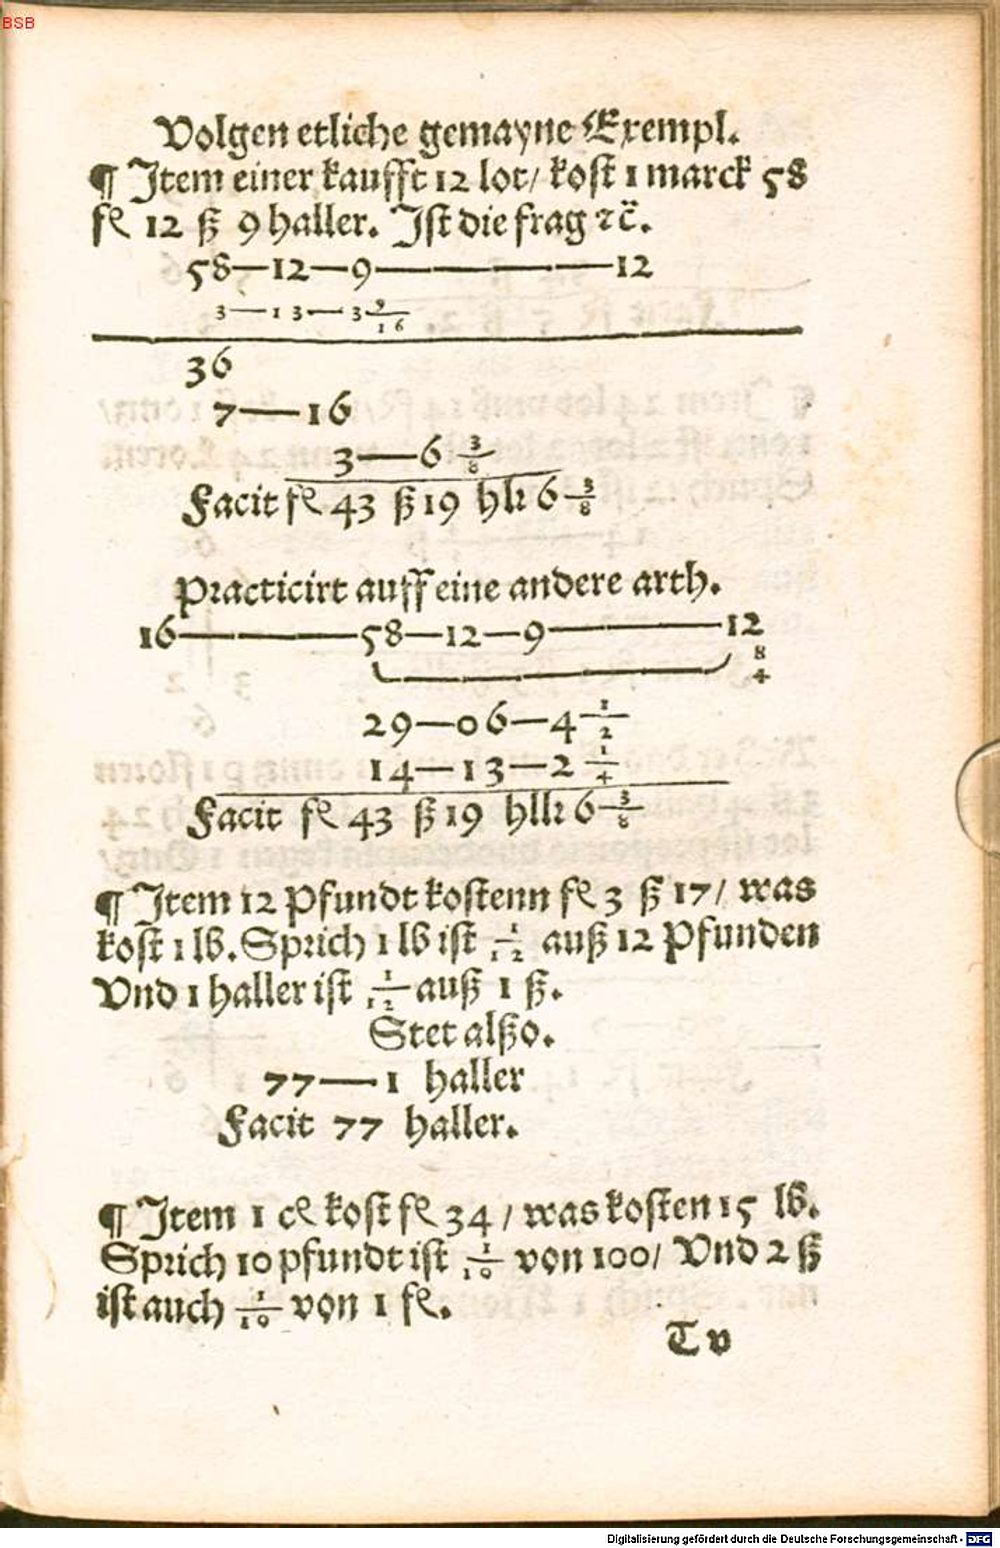 BSB
Volgen etliche gemayne Exempl.
¶ Item einer kaufft 12 lot/ kost 1 marck 58
fl 12 ß 9 haller. Ist die frag ⁊c̈.
58—12—9————12
3—13—3 9/16
36
7—16
3—6 3/8
Facit fl 43 ß 19 hlr 6 3/8
Practicirt auff eine andere arth.
16————58—12—9————12
8
4
29—06—4 1/2
14—13—2 1/4
Facit fl 43 ß 19 hllr 6 3/8
¶ Item 12 Pfundt kostenn fl 3 ß 17/ was
kost 1 lb. Sprich 1 lb ist 1/12 auß 12 Pfunden
Vnd 1 haller ist 1/12 auß 1 ß.
Stet alßo.
77—1 haller
Facit 77 haller.
¶ Item 1 cl kost fl 34 / was kosten 15 lb.
Sprich 10 pfundt ist 1/10 von 100/ Vnd 2 ß
ist auch 1/10 von 1 fl.
T v
Digitalisierung gefördert durch die Deutsche Forschungsgemeinschaft - DFG